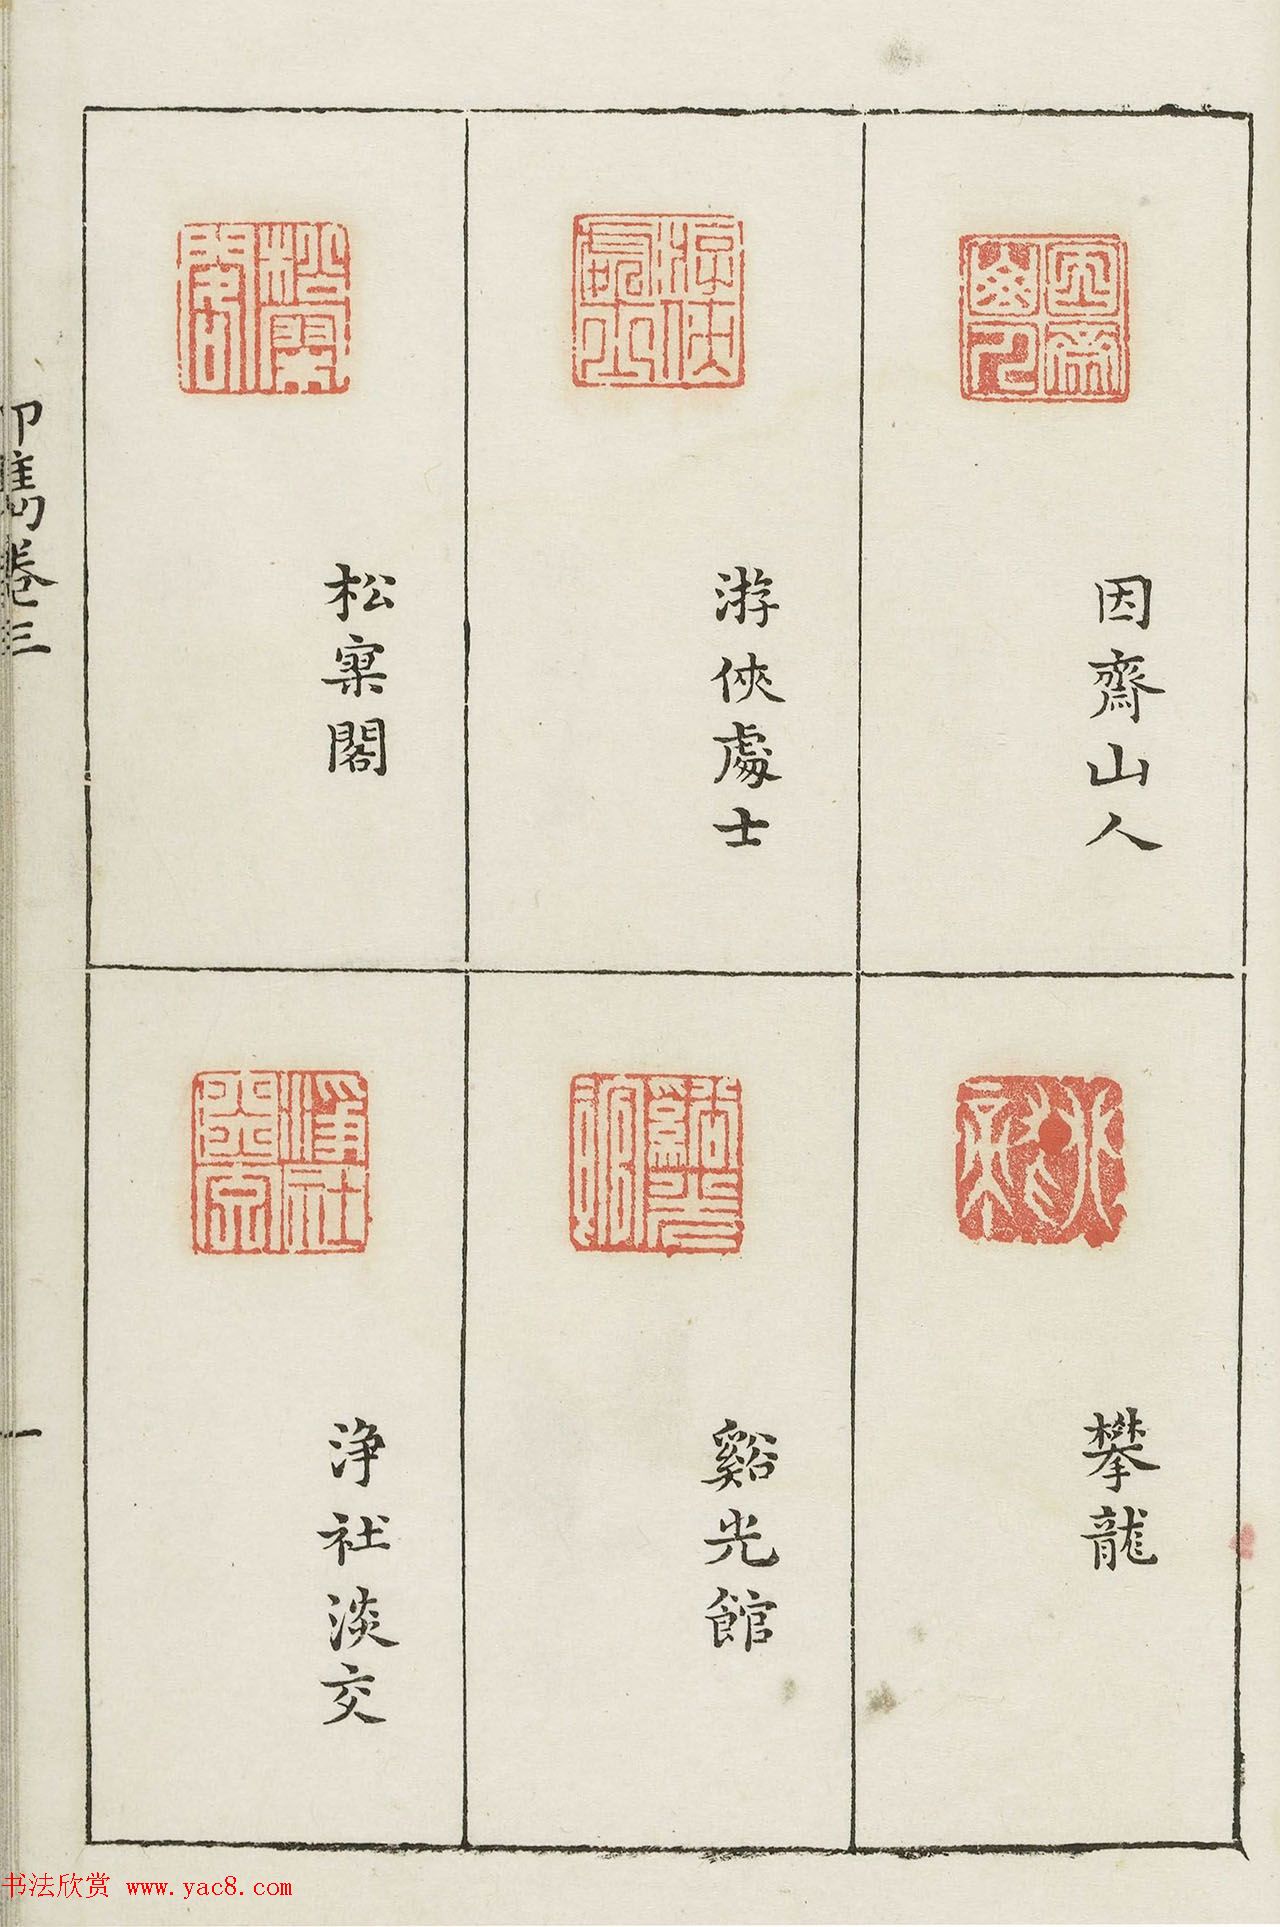 因齋山人
游俠處士
松寥閣
攀龍
谿光館
淨社淡交
印雋卷三
一
书法欣赏 www.yac8.com